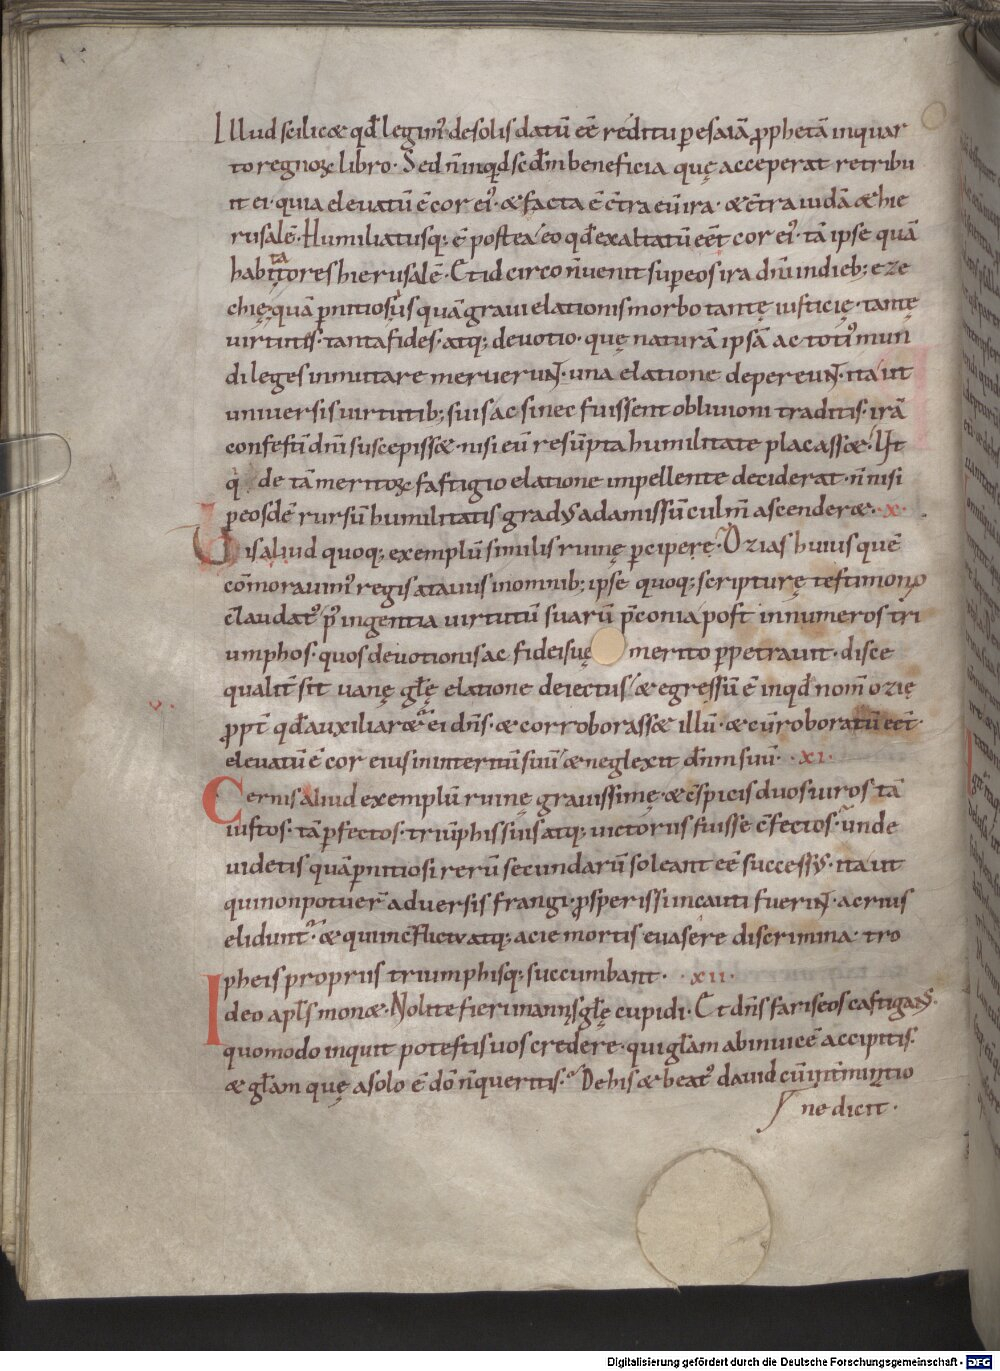 Illud scilicæ qđ legimꝰ de solis datū eē reditu ꝑ esaiā ꝓphetā in quar
to regnoꝝ libro· Sed ñ inquid scđm beneficia quę acceperat retribu
it ei· quia elevatū ē cor eiꝰ· & facta ē c̄tra eū ira· & c̄tra iudā & hie
rusalē· Humiliatusq; ē postea eo qđ exaltatū eēt cor eiꝰ· tā ipse quā
habitatores hierusalē· Et idcirco ñ venit suꝑ eos ira dn̄i in dieb; eze
chię· quā ꝑnitiosus quā gravi elationis morbo tantę iusticię· tantę
virtutis· tanta fides· atq; devotio· quę naturā ipsā ac totiꝰ mun
di leges inmutare meruerunt· una elatione depereunt· ita ut
universis virtutib; suis ac si nec fuissent oblivioni traditis· irā
confestī dn̄i suscepissæ· nisi eū resūpta humilitate placassæ· Ut
q̇ de tā meritoꝝ fastigio elatione impellente deciderat· ñ nisi
ꝑ eosdē rursū humilitatis gradus ad amissū culmī ascenderæ· ·x·
Vis aliud quoq; exemplū similis ruinę ꝑcipere· Ozias huius quē
cōmoravimꝰ regis atavus in omnib; ipse quoq; scripturę testimonio
c̄laudatꝰ pꝰ ingentia virtutū suarū p̄conia post innumeros tri
umphos· quos devotionis ac fidei suę merito ꝑpetravit· disce
qualit̄ sit vanę gl̄ę elatione deiectus· & egressū ē inqđ nom̄ ozię
ꝓpt̄ qđ auxiliaræ ei dn̄s· & corroborassæ illū· & cū roboratū eēt·
elevatū ē cor eius in interitū suū· & neglexit dn̄m suū· ·xi·
Cernis aliud exemplū ruinę gravissimę· & c̄spicis duos viros tā
iustos· tā ꝑfectos· triūphis suis atq; victoriis fuisse c̄fectos· unde
videtis quā ꝑnitiosi rerū secundarū soleant eē successus· ita ut
qui non potuer̄ adversis frangi· ꝓsperis si incauti fuerint· acrius
elidunt̄· & qui inc̄flictu atq; acie mortis evasere discrimina· tro
pheis propriis triumphisq; succumbant· ·xii·
Ideo apl̄s monæ· Nolite fieri inanis gl̄ę cupidi· Et dn̄s fariseos castigans·
quomodo inquit potestis vos credere· qui gl̄am ab invicē accipitis·
& gl̄am quę a solo ē dō ñ queritis· De his & beatꝰ david cū int̄mintio
ne dicit·
Digitalisierung gefördert durch die Deutsche Forschungsgemeinschaft - DFG